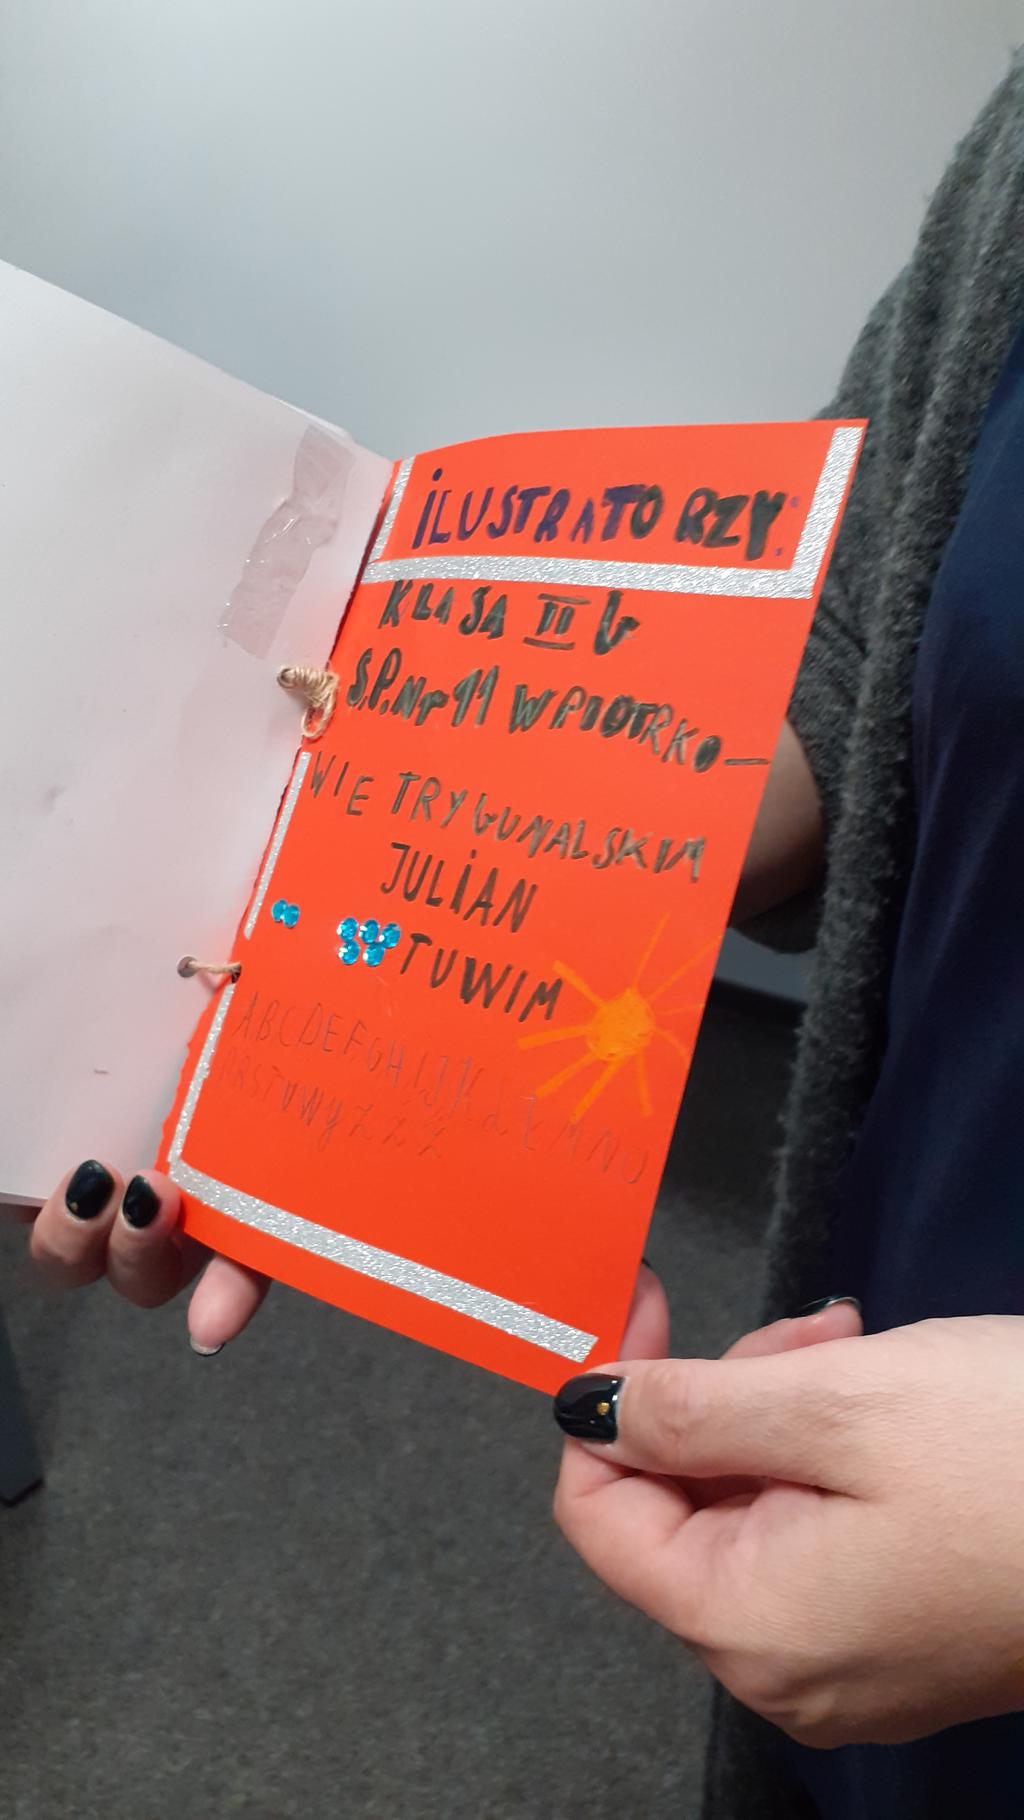 ILUSTRATORZY:
KLASA II b
S.P.Nr 11 W PIOTRKO-
WIE TRYBUNALSKIM
JULIAN
TUWIM
ABCDEFGHIJKLŁMNO
PRSTUWYZŹŻ